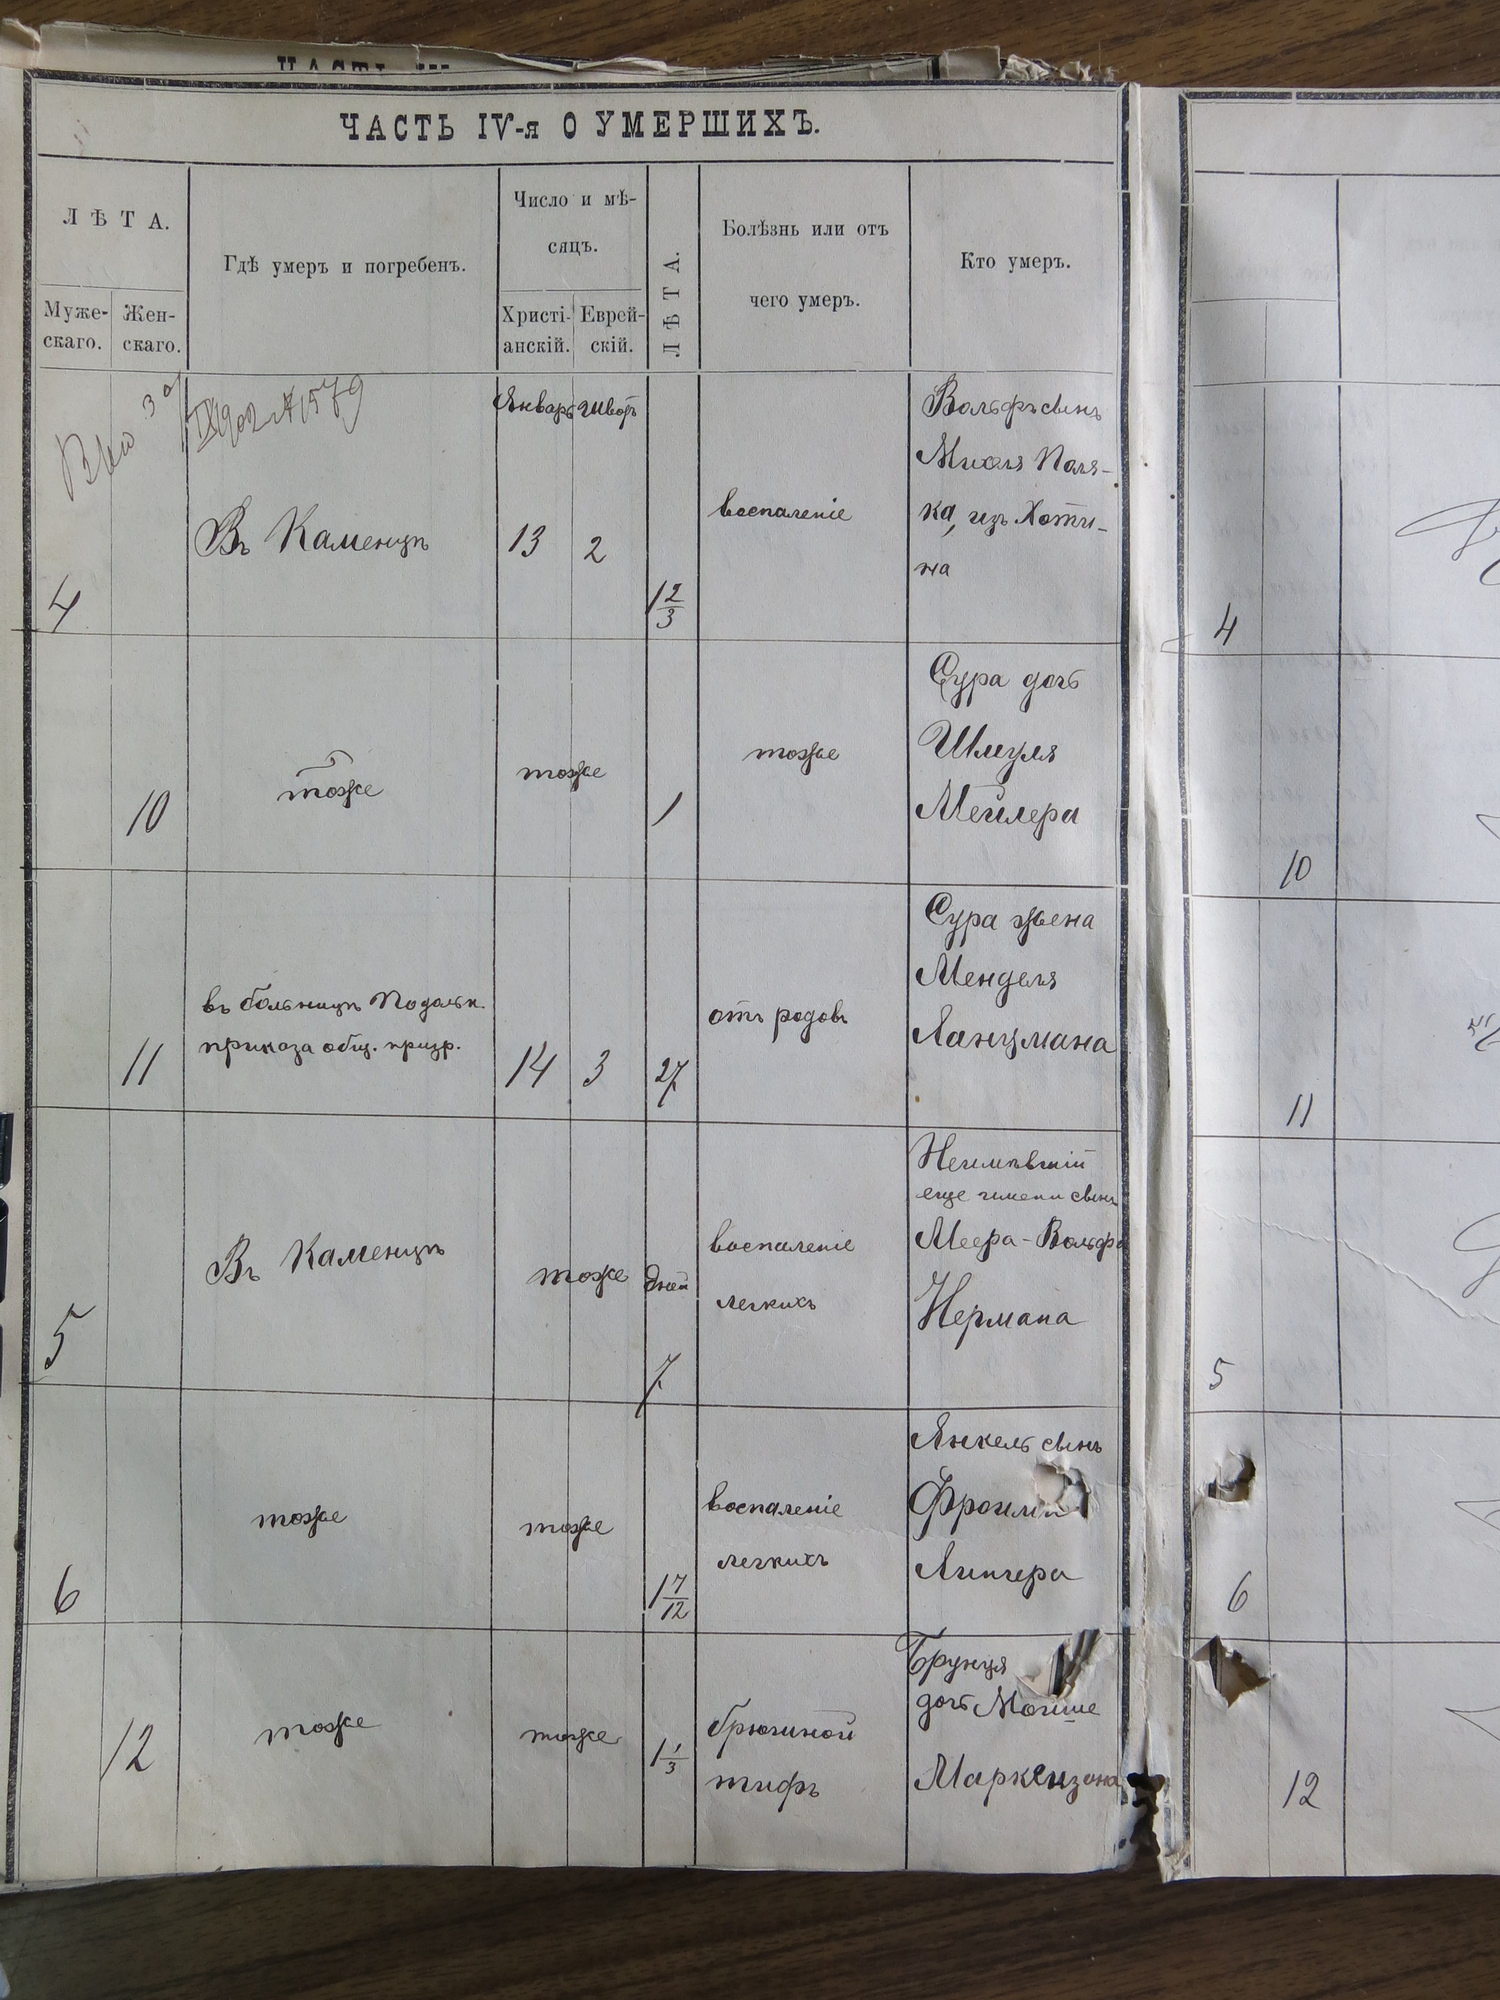 ЧАСТЬ IV-я О УМЕРШИХЪ.
ЛѢТА.
Муже-
скаго.
Жен-
скаго.
Гдѣ умеръ и погребенъ.
Число и мѣ-
сяцъ.
Христі-
анскій.
Еврей-
скій.
ЛѢТА.
Болѣзнь или отъ
чего умеръ.
Кто умеръ.
IX 1902 № 1579
4
Въ Каменцѣ
Январь
13
2
1 2/3
воспаленіе
Вольфъ сынъ
Михля Поля-
ка, изъ Хоти-
на
4
10
тоже
тоже
1
тоже
Сура дочь
Шмуля
Мейлера
10
11
въ больницѣ Подольск.
приказа общ. призр.
14
3
27
отъ родовъ
Сура жена
Менделя
Ланцмана
11
5
Въ Каменцѣ
тоже
дней
7
воспаленіе
легкихъ
Неимѣвшій
еще имени сынъ
Меера-Вольфа
Нермана
5
6
тоже
тоже
1 7/12
воспаленіе
легкихъ
Янкель сынъ
Фроима
Липчера
6
12
тоже
тоже
1 1/3
брюшной
тифъ
Брунця
дочь Мошие
Маркензона
12